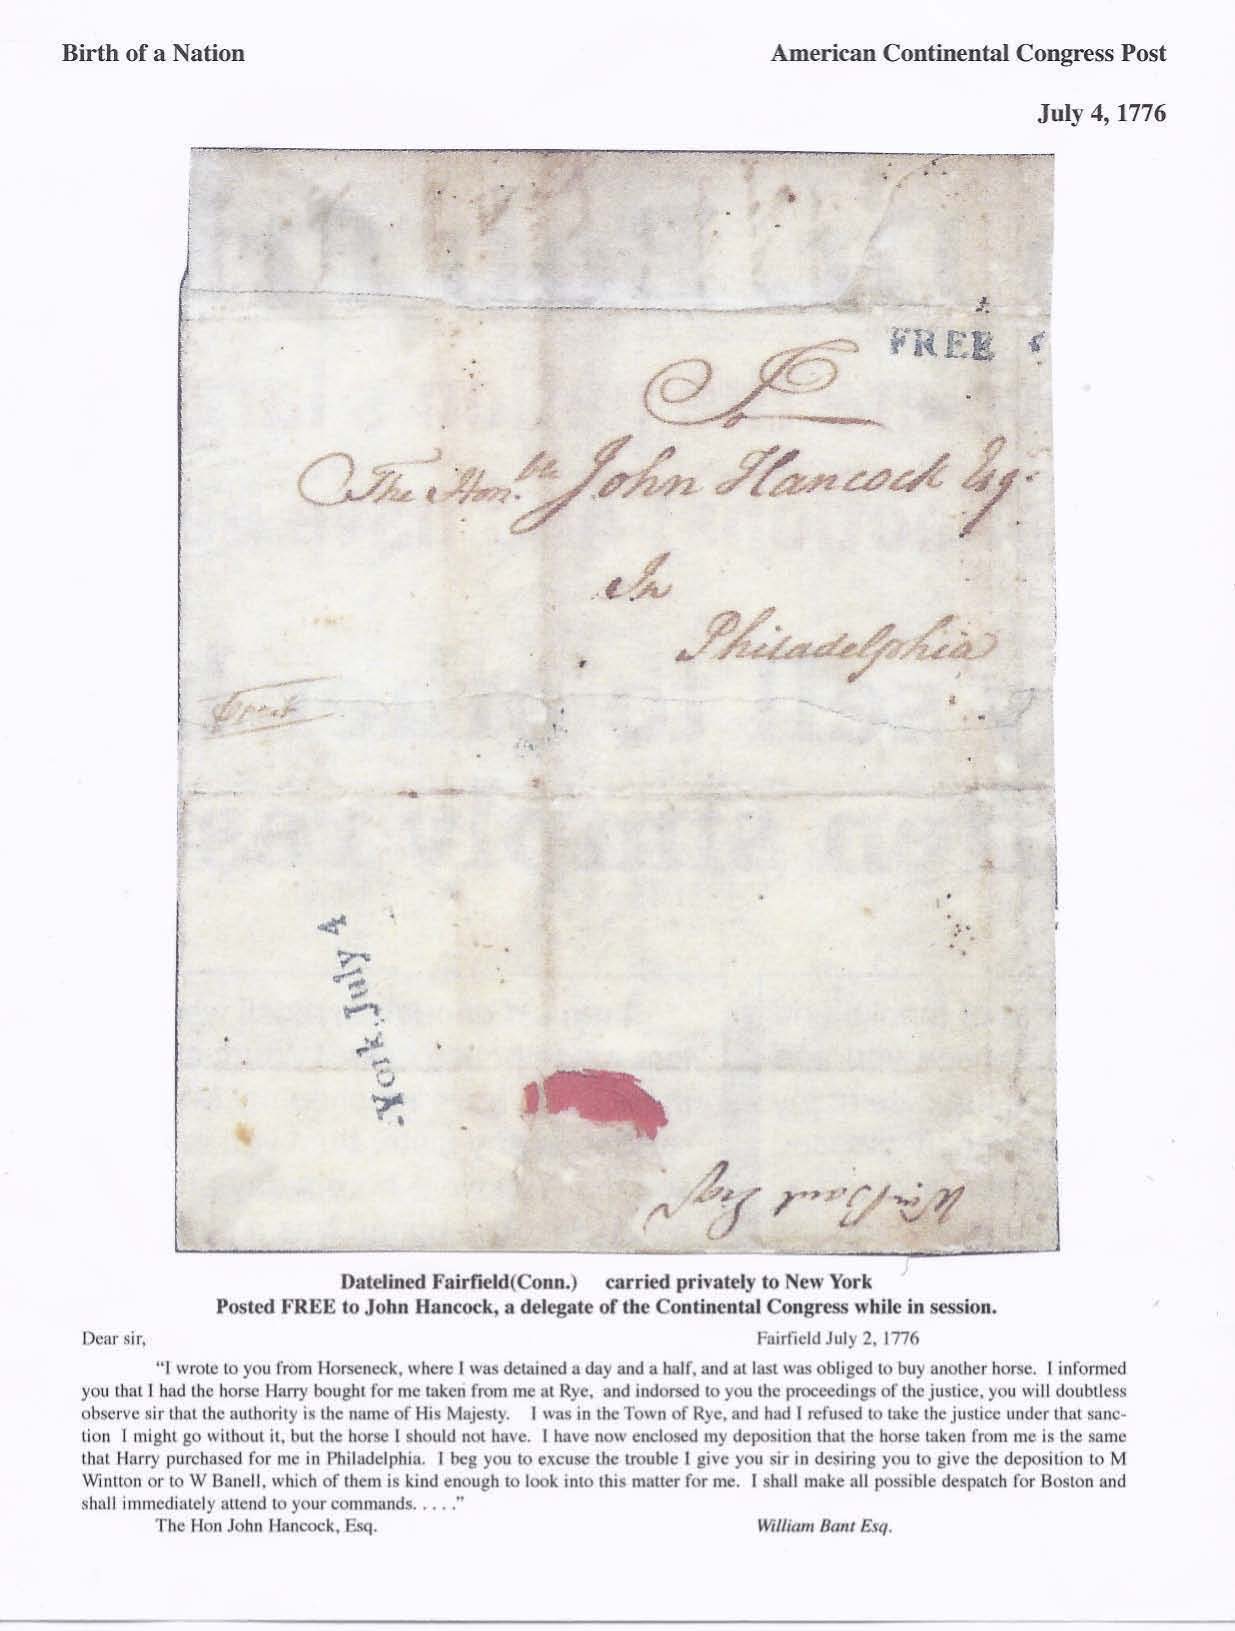 Birth of a Nation
American Continental Congress Post
July 4, 1776
FREE
To
The Hon.ble John Hancock Esqr
In
Philadelphia
York. July 4
Wm Bant Esq
Datelined Fairfield(Conn.) carried privately to New York
Posted FREE to John Hancock, a delegate of the Continental Congress while in session.
Dear sir, Fairfield July 2, 1776
“I wrote to you from Horseneck, where I was detained a day and a half, and at last was obliged to buy another horse. I informed
you that I had the horse Harry bought for me taken from me at Rye, and indorsed to you the proceedings of the justice, you will doubtless
observe sir that the authority is the name of His Majesty. I was in the Town of Rye, and had I refused to take the justice under that sanc-
tion I might go without it, but the horse I should not have. I have now enclosed my deposition that the horse taken from me is the same
that Harry purchased for me in Philadelphia. I beg you to excuse the trouble I give you sir in desiring you to give the deposition to M
Wintton or to W Banell, which of them is kind enough to look into this matter for me. I shall make all possible despatch for Boston and
shall immediately attend to your commands. . . . .”
The Hon John Hancock, Esq. William Bant Esq.